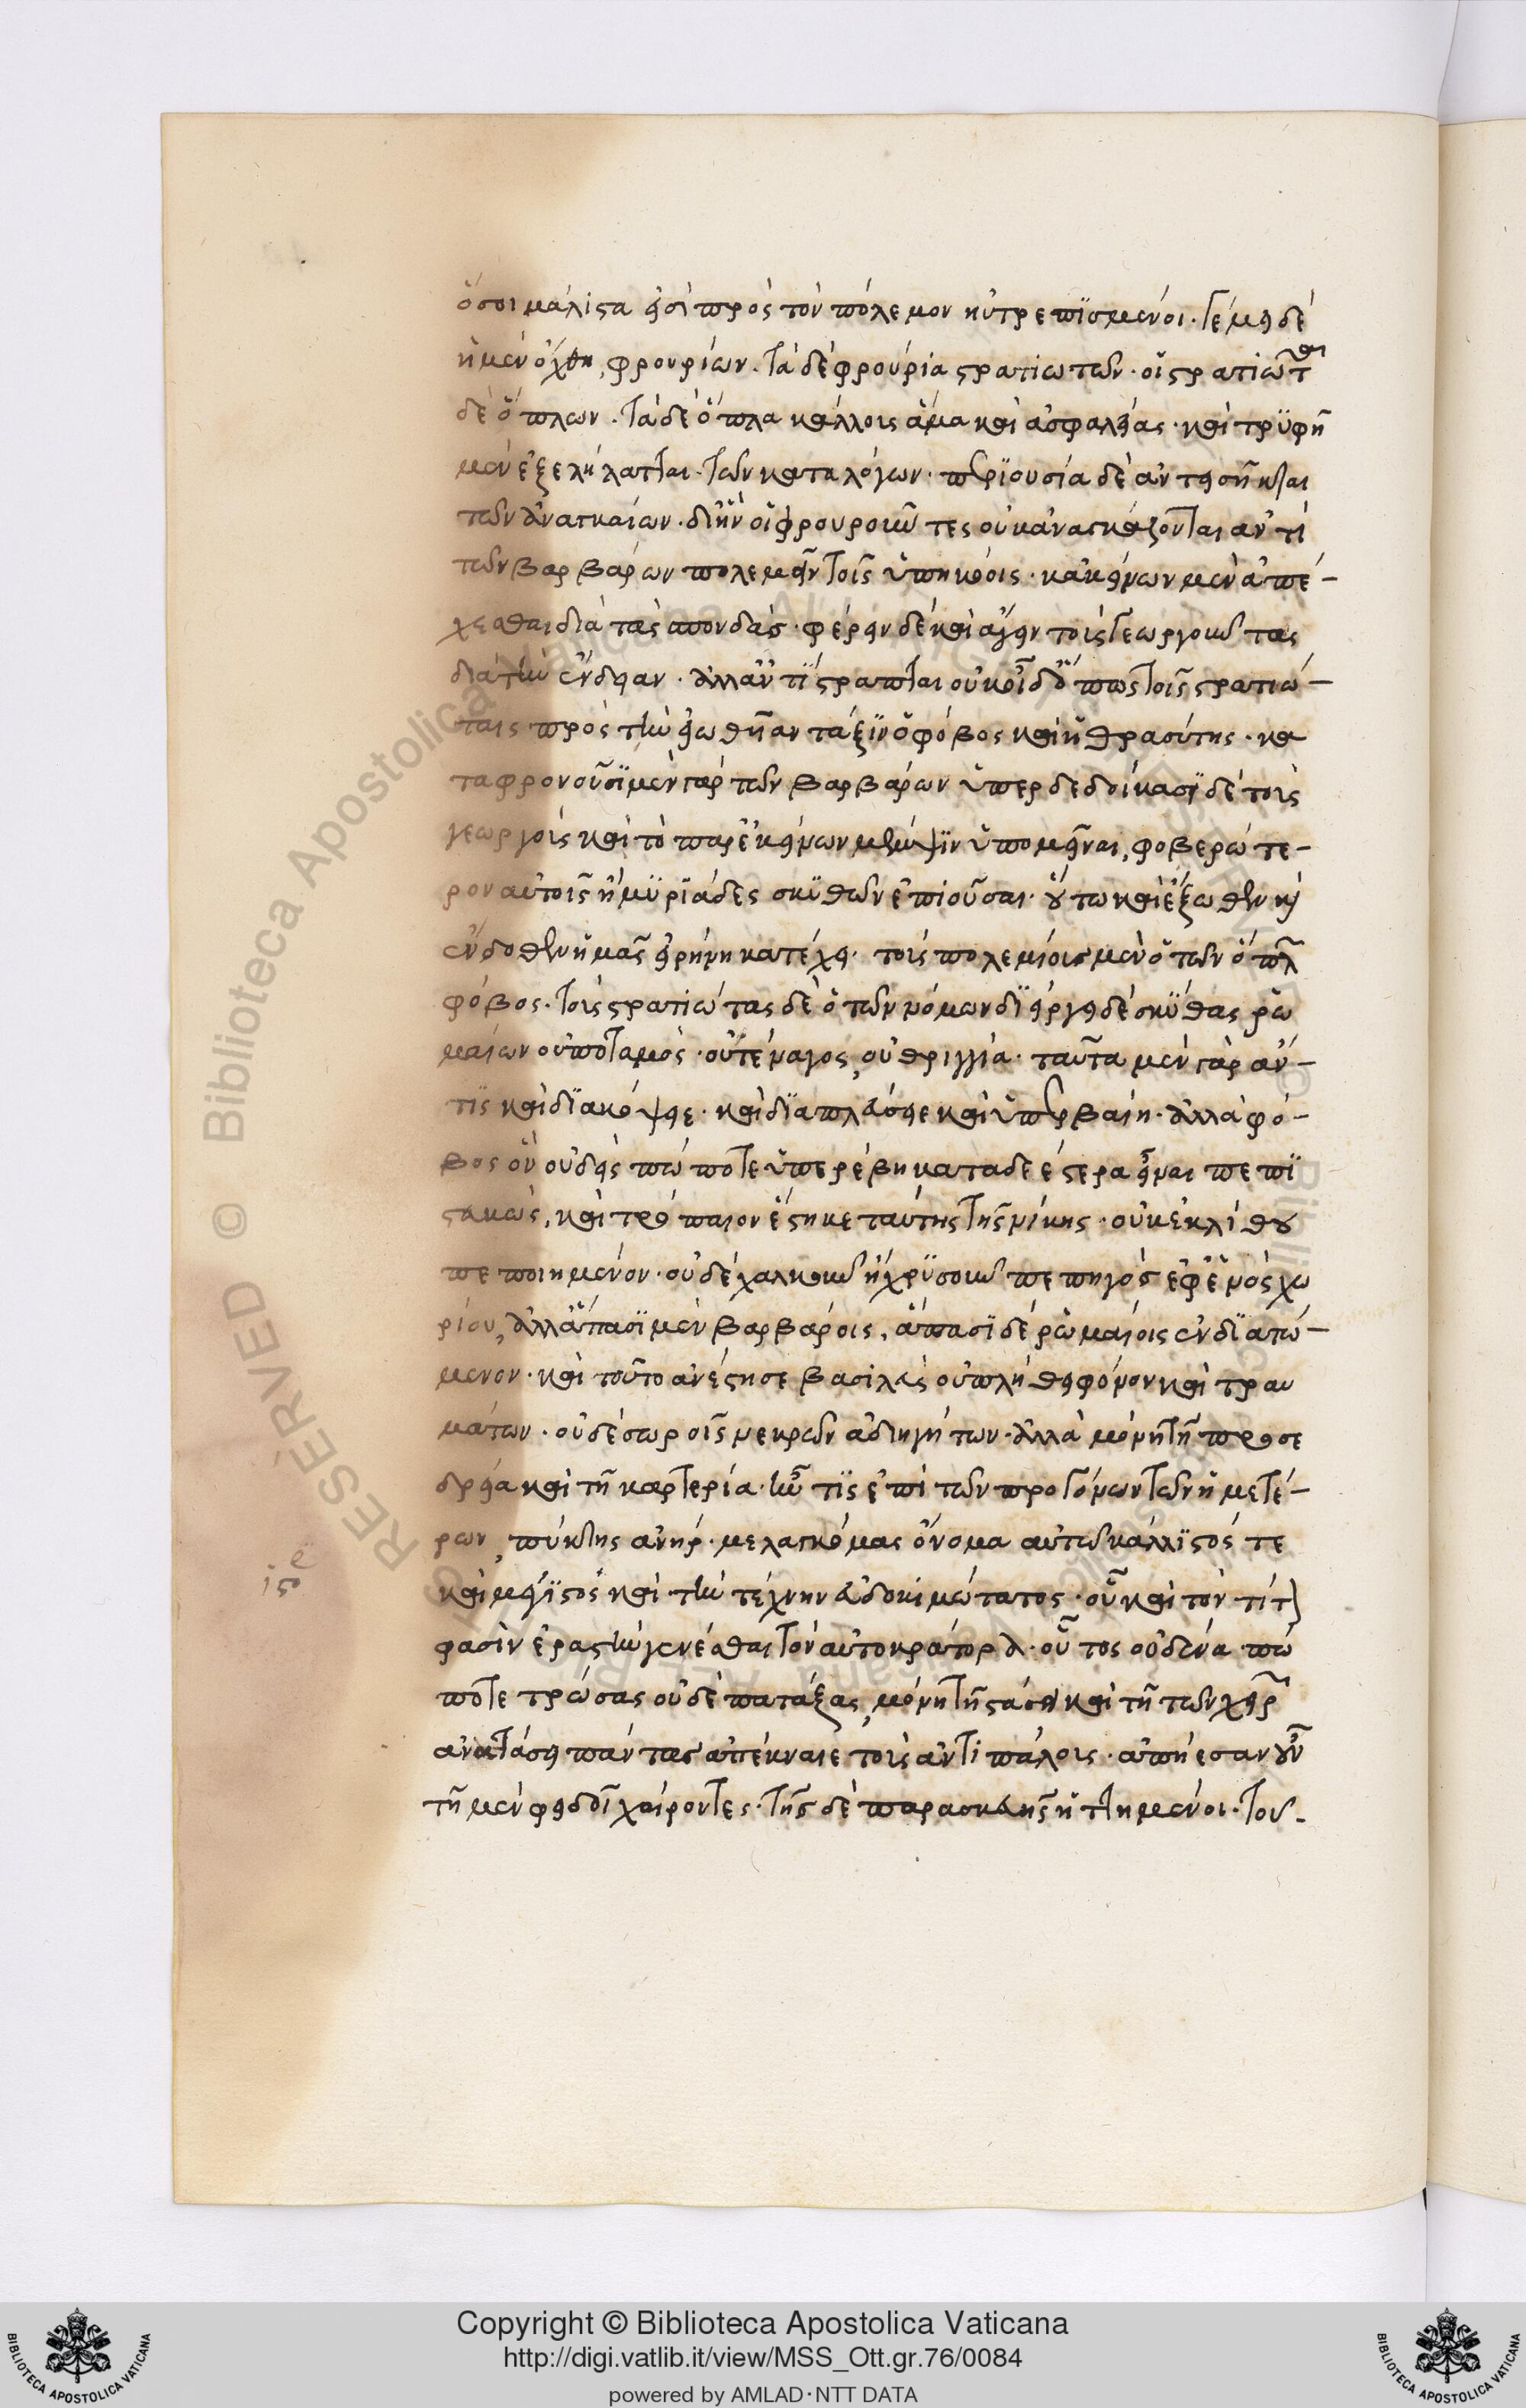 ὅσοι μάλιστα εἰσὶ πρὸς τὸν πόλεμον ηὐτρεπϊσμένοι. γέμει δὲ
ἡ μὲν ὄχθη, φρουρίων. τὰ δὲ φρούρια στρατιωτῶν. οἱ στρατιῶται
δὲ ὅπλων. τὰ δὲ ὅπλα κάλλοις ἅμα καὶ ἀσφαλείας. καὶ τρϋφὴ
μὲν ἐξελήλαται τῶν καταλόγων. περϊουσία δὲ ἀντεισῆκται
τῶν ἀναγκαίων. δι' ἣν οἱ φρουροῦντες οὐκ ἀναγκάζονται ἀντὶ
τῶν βαρβάρων πολεμεῖν τοῖς ὑπηκόοις. κἀκείνων μὲν ἀπέ-
χεσθαι διὰ τὰς σπονδάς. φέρειν δὲ καὶ ἄγειν τοὺς γεωργοῦντας
διὰ τὴν ἔνδειαν. ἀλλ' ἀντέστραπται οὐκ οἶδ' ὅπως τοῖς στρατιώ-
ταις πρὸς τὴν εἰωθῆαν τάξϊν ὁ φόβος καὶ ἡ θρασύτης. κα
ταφρονοῦσϊ μὲν γὰρ τῶν βαρβάρων ὑπερδεδοίκασϊ δὲ τοὺς
γεωργοὺς καὶ τὸ παρ' ἐκείνων μέμψϊν ὑπομεῖναι, φοβερώτε-
ρον αὐτοῖς ἢ μϋρϊάδες σκϋθῶν ἐπιοῦσαι. οὕτω καὶ ἔξωθεν καὶ
ἔνδοθεν ἡμᾶς εἰρήνη κατέχει. τοὺς πολεμίους μὲν ὁ τῶν ὅπλων
φόβος. τοὺς στρατιώτας δὲ ὁ τῶν νόμων δϊείργει δὲ σκϋθας ῥω
μαίων οὐ ποταμὸς. οὐ τέναγος, οὐ θριγγία. ταῦτα μὲν γὰρ ἄν-
τις καὶ δϊακόψειε. καὶ δϊαπλεύσειε καὶ ὑπερβαίη. ἀλλὰ φό-
βος ὃν οὐδεὶς πώποτε ὑπερέβη καταδεέστερα εἶναι πεπϊ
στακὼς, καὶ τρόπαιον ἕστηκε ταύτης τῆς νίκης. οὐκ ἐκ λίθου
πεποιημένον. οὐδὲ χαλκοῦν ἢ χρϋσοῦν πεπηγὸς ἐφ' ἑνὸς χω
ρίου, ἀλλ' ἅπασϊ μὲν βαρβάροις, ἅπασϊ δὲ ῥωμαίοις ἐνδϊαιτώ-
μενον. καὶ τοῦτο ἀνέστησε βασιλεὺς οὐ πλήθει φόνον καὶ τραυ
μάτων. οὐδὲ σωροῖς νεκρῶν ἀδιηγήτων. ἀλλὰ μόνῃ τῇ προσε
δρεία καὶ τῇ καρτερία. ἦν τϊς ἐπὶ τῶν προγόνων τῶν ἡμετέ-
ρων, πύκτης ἀνὴρ. μελαγκόμας ὄνομα αὐτῶ κάλλϊστός τε
καὶ μέγϊστος καὶ τὴν τέχνην εὐδοκιμώτατος. οὗ καὶ τὸν τίτον
φασὶν ἐραστὴν γενέσθαι τὸν αὐτοκράτορα. οὗτος οὐδένα πώ
ποτε τρώσας οὐδὲ πατάξας, μόνῃ τῇ στάσει καὶ τῇ τῶν χειρῶν
ἀνατάσει πάντας ἀπέκναιε τοὺς ἀντιπάλοις. ἀπήεσαν οὖν
τῇ μὲν φειδοῖ χαίροντες. τῆς δὲ παρασκευῆς ἡττημένοι. τοῦ-